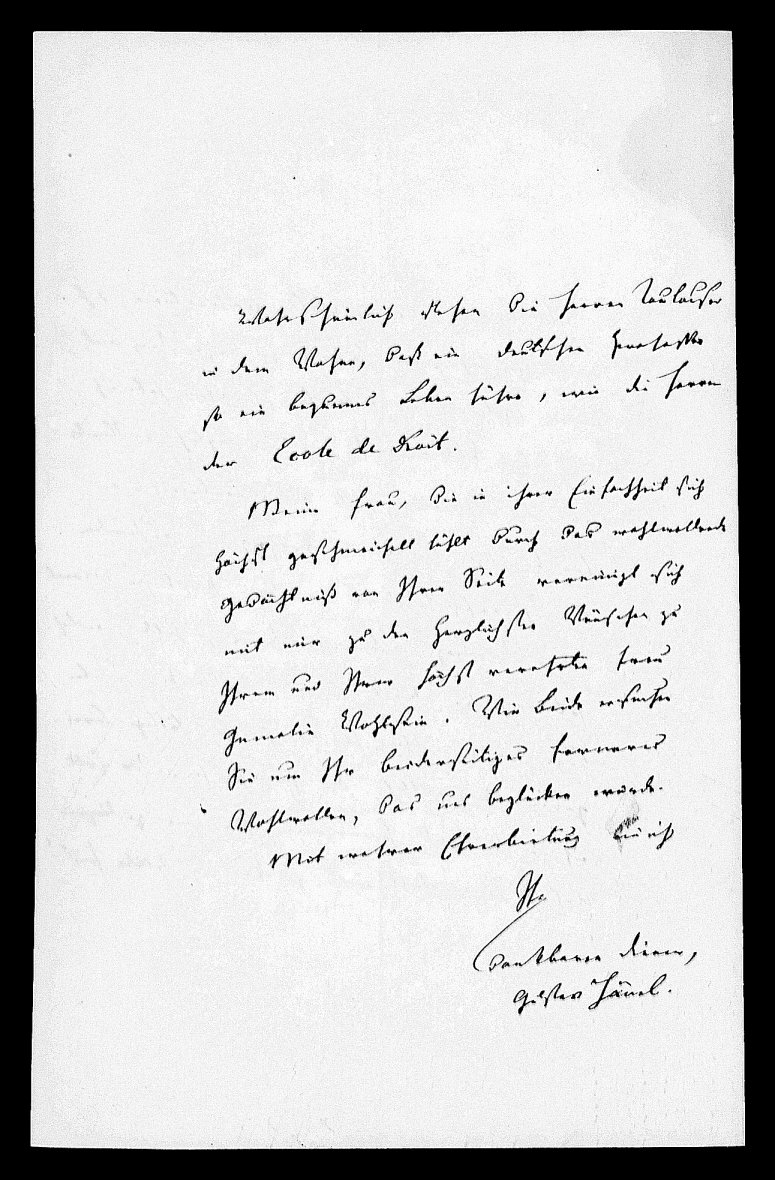 Wahrscheinlich stehen die Herren Toulouser
in dem Wahne, daß ein deutscher Professor
so ein bequemes Leben führe, wie die Herren
der Ecole de Droit.
Meine Frau, die in ihrer Einfachheit sich
höchst geschmeichelt fühlt durch das wohlwollende
Gedächtniß von Ihrer Seite vereinigt sich
mit mir zu den herzlichsten Wünschen zu
Ihrem und Ihrer höchst verehrten Frau
Gemalin Wohlsein. Wir beide ersuchen
Sie um Ihr beiderseitiges ferneres
Wohlwollen, das uns beglücken würde.
Mit wahrer Ehrerbietung bin ich
Ihr
dankbarer Diener,
Gustav Hänel.